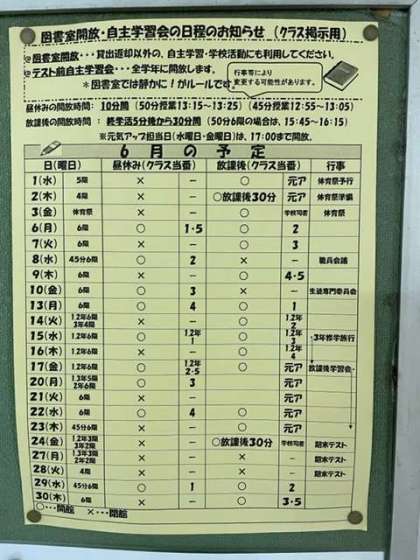 図書室開放・自主学習会の日程のお知らせ (クラス掲示用)
◎図書室開放・・・貸出返却以外の、自主学習・学校活動にも利用してください。
◎テスト前自主学習会・・・全学年に開放します。
*図書室では静かに!がルールです。
行事等により
変更する可能性があります。
昼休みの開放時間: 10分間 (50分授業13:15～13:25) (45分授業12:55～13:05)
放課後の開放時間: 終学活5分後から30分間 (50分6限の場合は、15:45～16:15)
※元気アップ担当日(水曜日・金曜日)は、17:00まで開放。
6月の予定
日(曜日) 昼休み(クラス当番) 放課後(クラス当番) 行事
1(水) 5限 × － ○ 元ア 体育祭予行
2(木) 4限 × － ○放課後30分 元ア 体育祭準備
3(金) 体育祭 × － ○ 学校司書 体育祭
6(月) 6限 ○ 1・5 ○ 2
7(火) 6限 × － ○ 3
8(水) 45分6限 ○ 2 × － 職員会議
9(木) 6限 × － ○ 4・5
10(金) 6限 ○ 3 × － 生徒専門委員会
13(月) 6限 ○ 4 ○ 1
14(火) 1.2年6限 3年4限 × － ○ 1.2年 2
15(水) 1.2年6限 ○ 1.2年 1 ○ 1.2年 3 3年修学旅行
16(木) 1.2年6限 × － ○ 1.2年 4
17(金) 1.2年6限 ○ 1.2年 2・5 ○ 元ア 放課後学習会
20(月) 1.3年5限 2年6限 ○ 3 ○ 元ア
21(火) 6限 × － ○ 元ア
22(水) 6限 ○ 4 ○ 元ア
23(木) 45分6限 × － ○ 元ア
24(金) 1.2年3限 3年2限 × － ○放課後30分 学校司書 期末テスト
27(月) 1.3年3限 2年2限 × － × － 期末テスト
28(火) 4限 × － × － 期末テスト
29(水) 45分6限 ○ 1 ○ 2
30(木) 6限 × － ○ 3・5
○・・・開館 ×・・・閉館